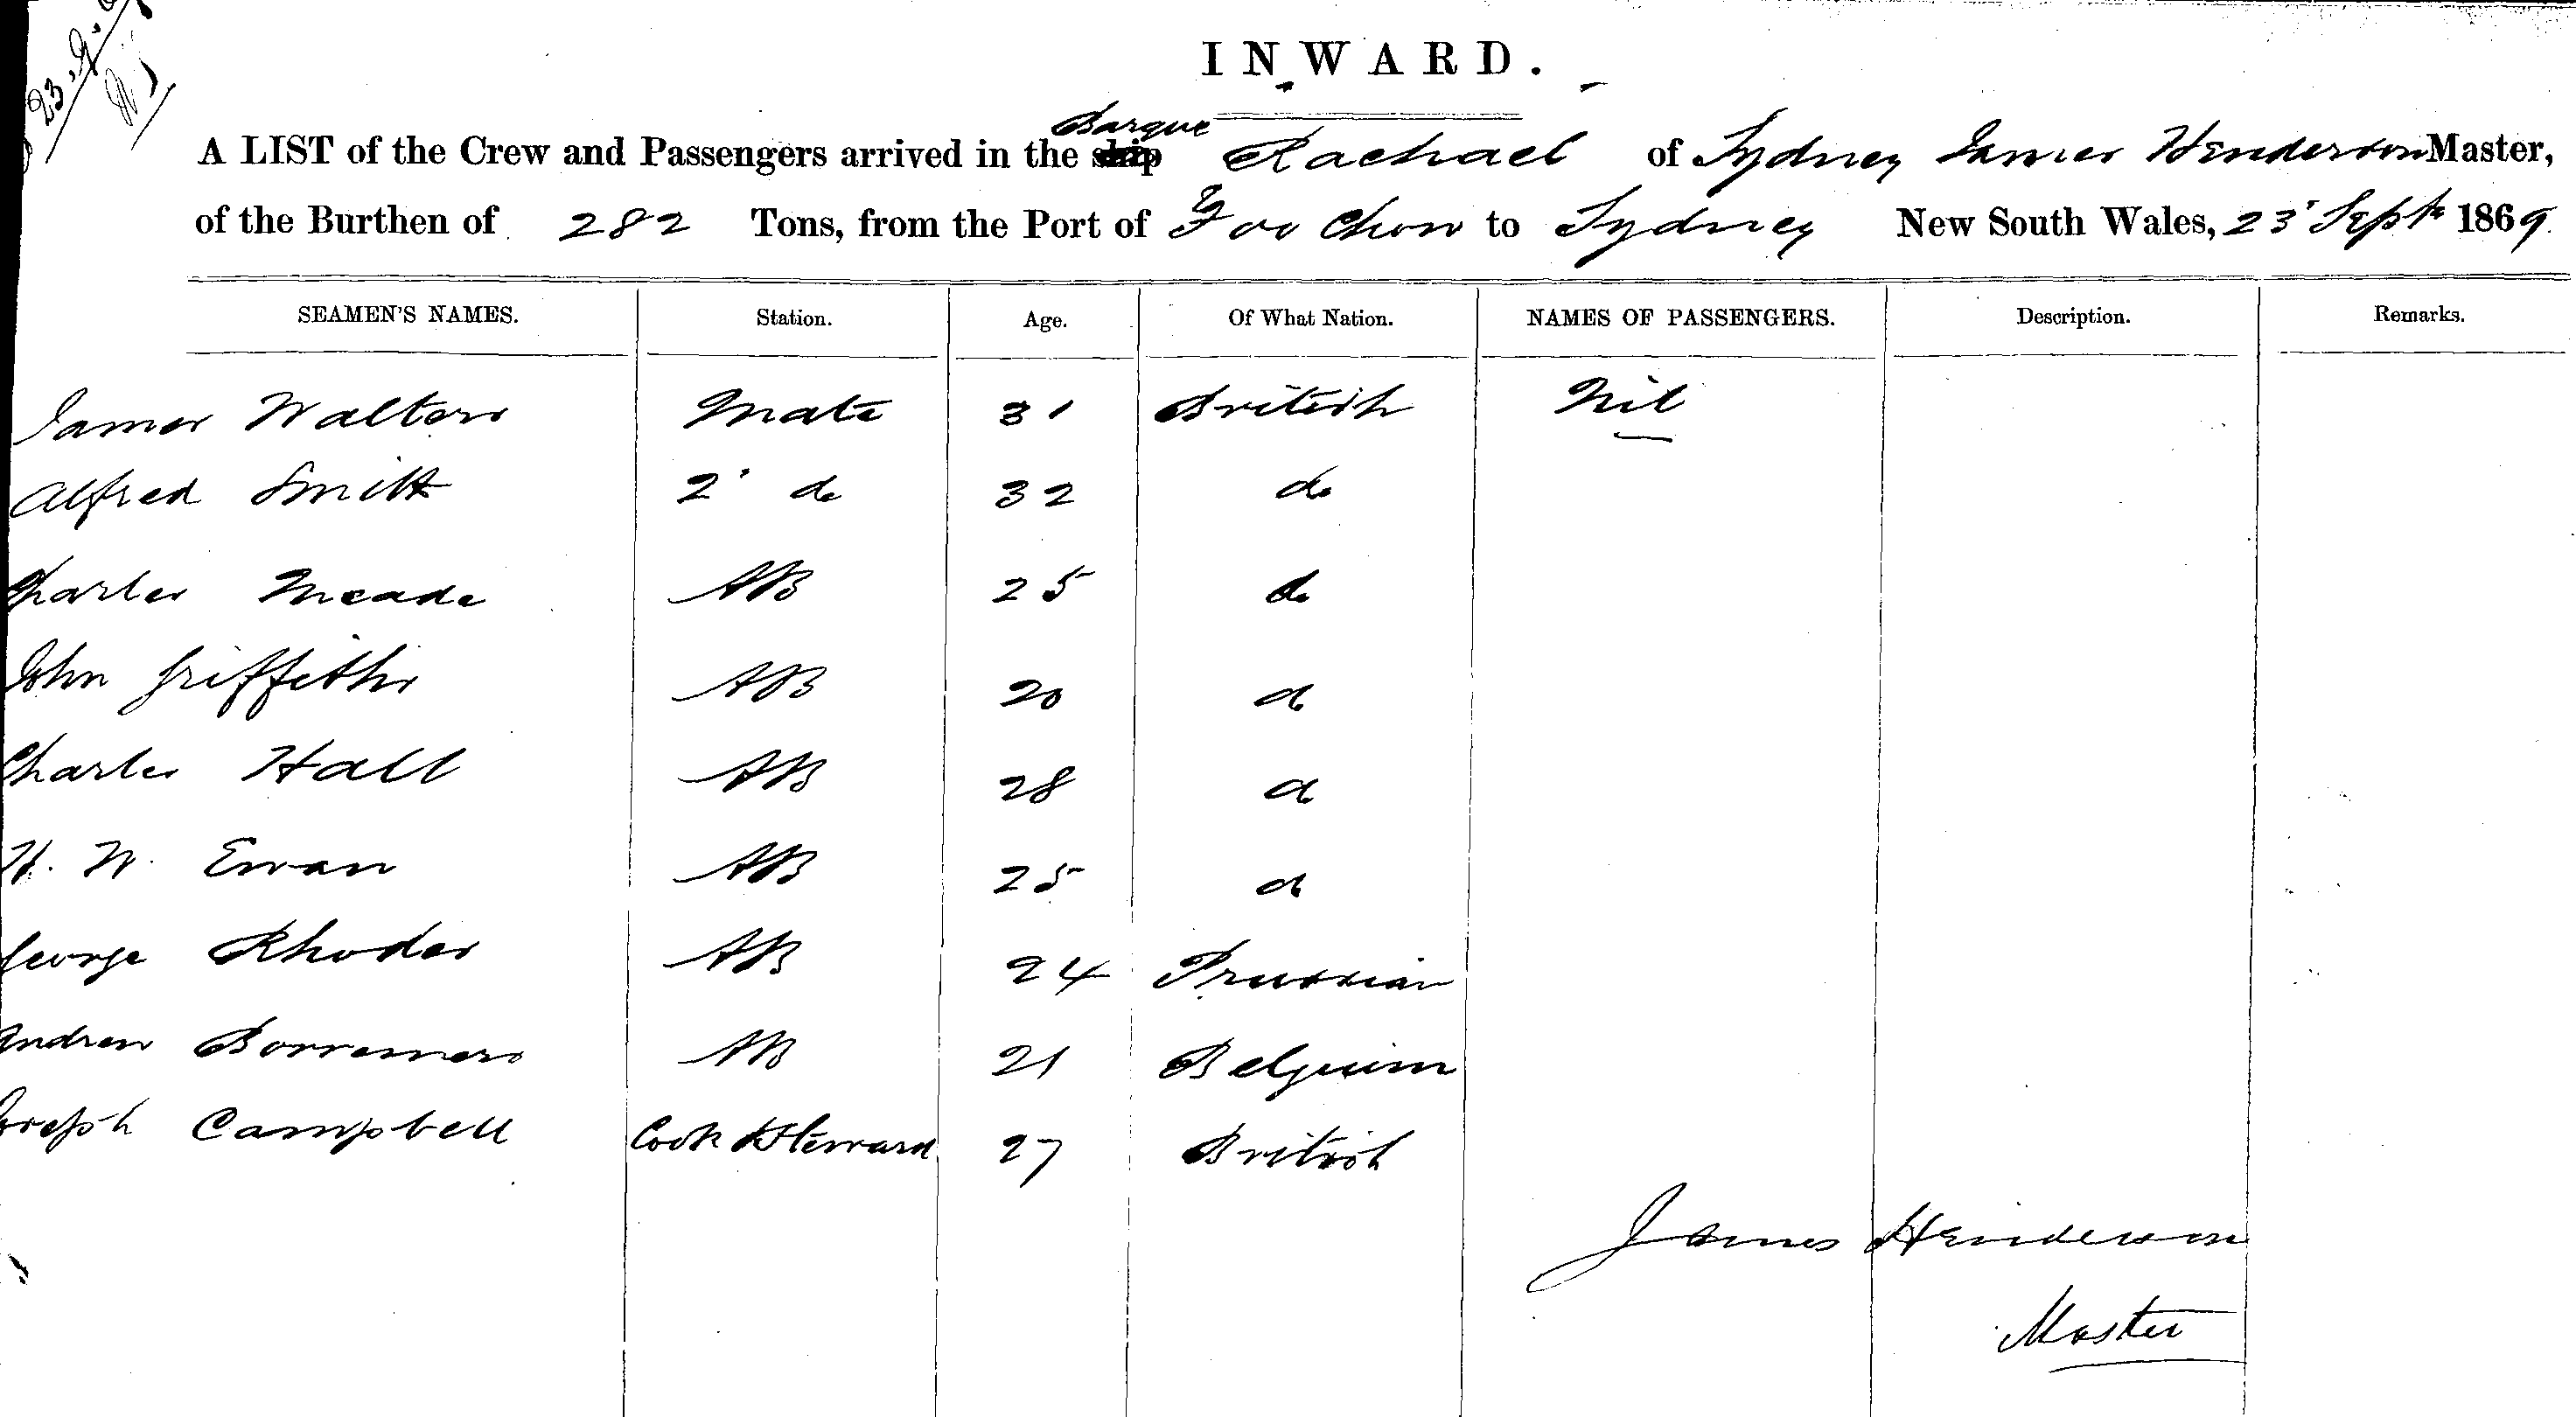 23.9.
INWARD.
A LIST of the Crew and Passengers arrived in the ship Barque Rachael of Sydney James Henderson Master,
of the Burthen of 282 Tons, from the Port of Foo Chow to Sydney New South Wales, 23 Sept 1869
SEAMEN'S NAMES. Station. Age. Of What Nation. NAMES OF PASSENGERS. Description. Remarks.
James Walters Mate 31 British Nil
Alfred Smith 2 do 32 do
Charles Meade AB 25 do
John Griffiths AB 20 do
Charles Hall AB 28 do
H. W. Ewan AB 25 do
George Rhodes AB 24 Prussian
Andrew AB 21 Belguim
Joseph Campbell Cook & Steward 27 British
James Henderson
Master